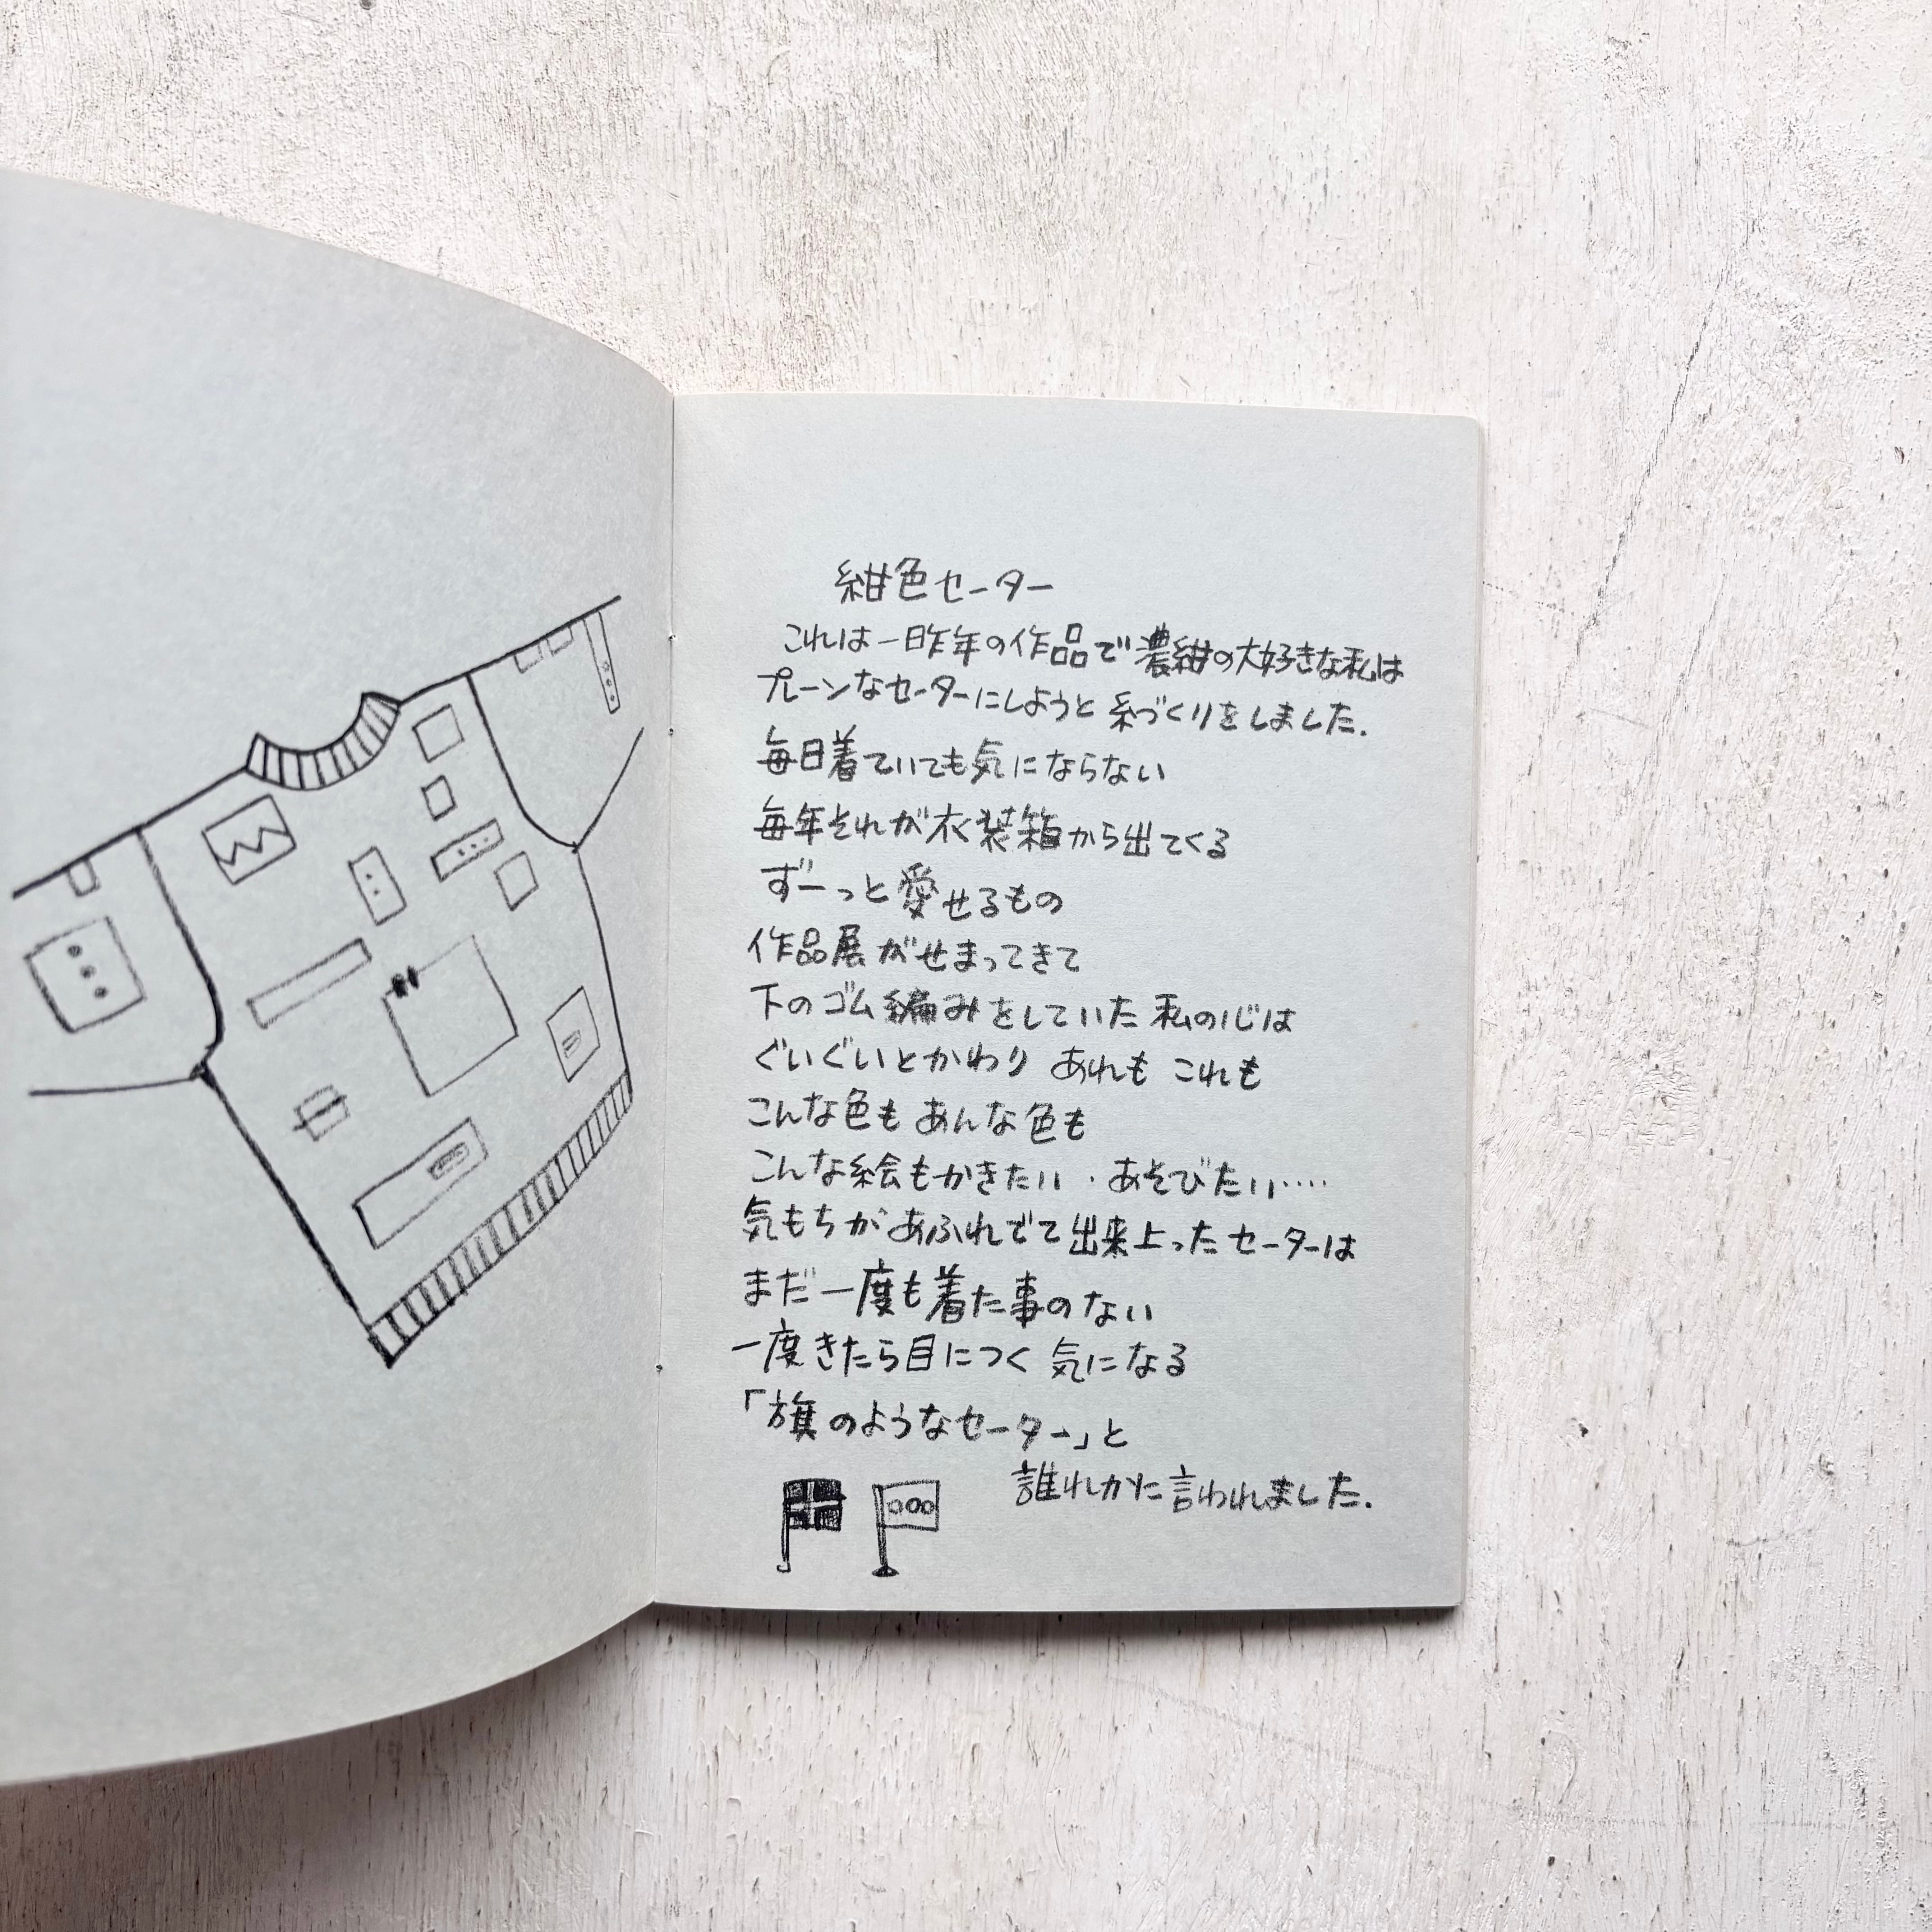 紺色セーター
これは一昨年の作品で濃紺の大好きな私は
プレーンなセーターにしようと 糸づくりをしました.
毎日着ていても気にならない
毎年それが衣装箱から出てくる
ずーっと愛せるもの
作品展がせまってきて
下のゴム編みをしていた 私の心は
ぐいぐいとかわり あれも これも
こんな色も あんな色も
こんな絵もかきたい・あそびたい‥‥
気もちがあふれでて出来上ったセーターは
まだ一度も着た事のない
一度きたら目につく 気になる
「旗のようなセーター」と
誰れかに言われました.